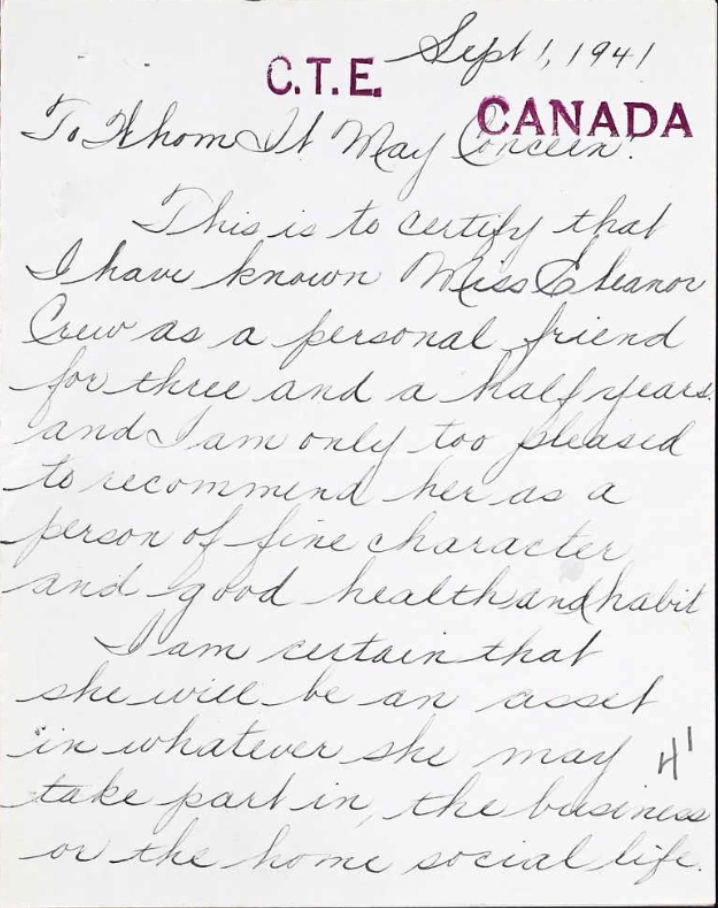 Sept 1, 1941
C.T.E.
CANADA
To Whom It May Concern:
This is to certify that
I have known Miss Eleanor
Crew as a personal friend
for three and a half years.
and I am only too pleased
to recommend her as a
person of fine character
and good health and habit
I am certain that
she will be an asset
in whatever she may
H'
take part in, the business
or the home social life.